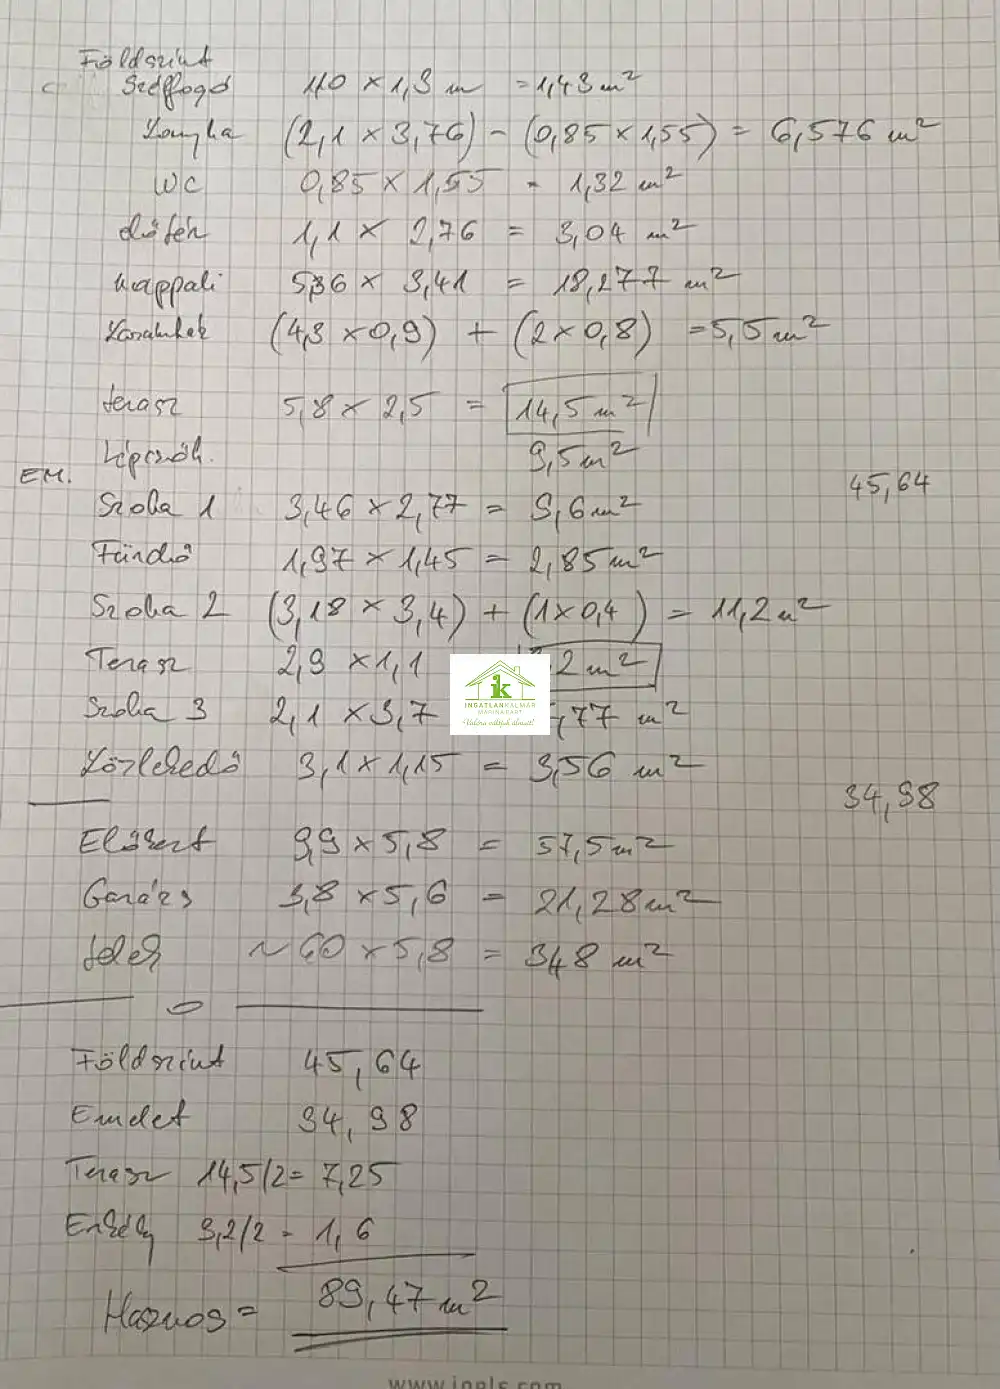 Földszint
Szélfogó 1,10 × 1,3 m = 1,43 m²
Konyha (2,1 × 3,76) - (0,85 × 1,55) = 6,576 m²
WC 0,85 × 1,55 = 1,32 m²
előtér 1,1 × 2,76 = 3,04 m²
nappali 5,36 × 3,41 = 18,277 m²
(4,3 × 0,9) + (2 × 0,8) = 5,5 m²
terasz 5,8 × 2,5 = 14,5 m²
Lépcsők. 9,5 m²
EM. 45,64
Szoba 1 3,46 × 2,77 = 9,6 m²
Fürdő 1,97 × 1,45 = 2,85 m²
Szoba 2 (3,18 × 3,4) + (1 × 0,4) = 11,2 m²
Terasz 2,9 × 1,1 2 m²
IK
INGATLANKALMÁR
MARINA PART
Szoba 3 2,1 × 3,7 ,77 m²
Közlekedő 3,1 × 1,15 = 3,56 m²
34,98
Előkert 9,9 × 5,8 = 57,5 m²
Garázs 3,8 × 5,6 = 21,28 m²
telek ~ 60 × 5,8 = 348 m²
Földszint 45,64
Emelet 34,98
Terasz 14,5/2 = 7,25
Erkély 3,2/2 = 1,6
Hasznos = 89,47 m²